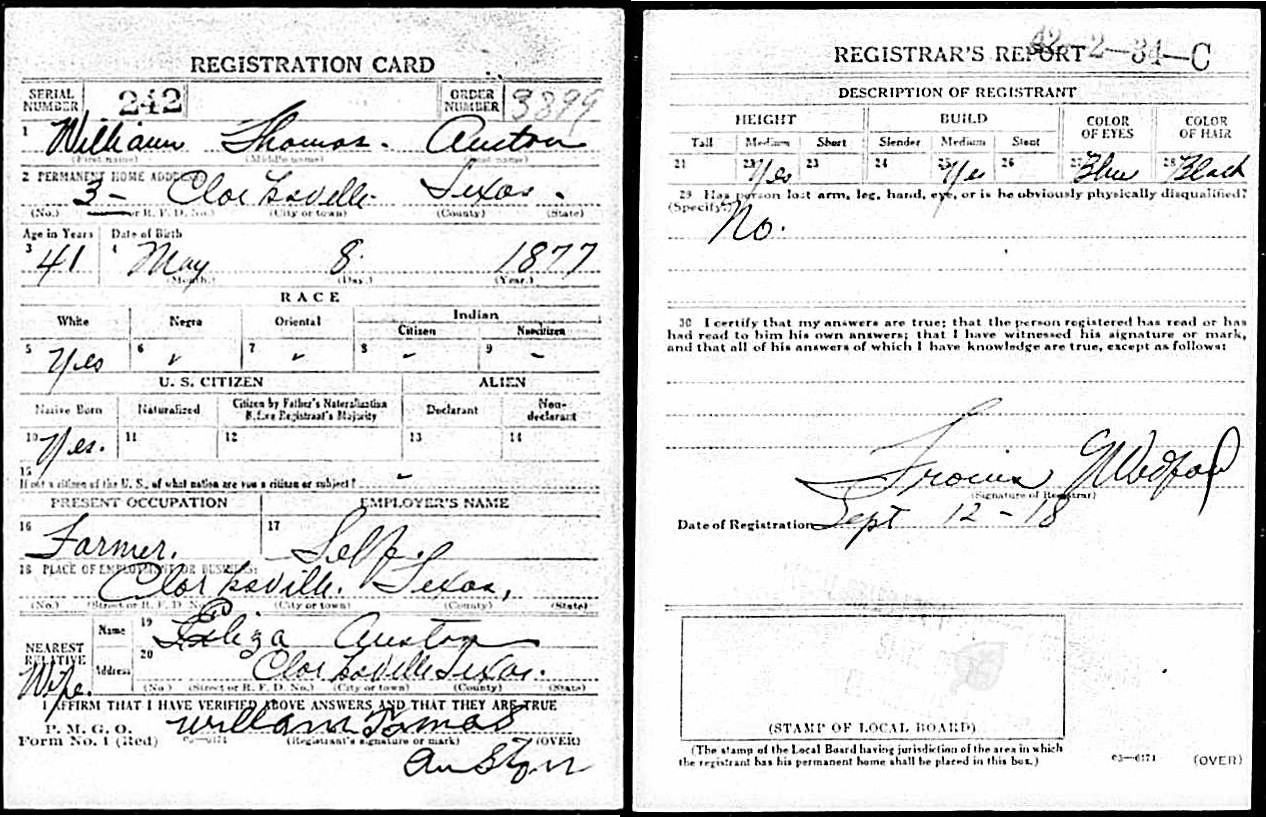 REGISTRATION CARD
SERIAL NUMBER 242 ORDER NUMBER 3899
1 William Thomas. Auston
(First name) (Middle name) (Last name)
2 PERMANENT HOME ADDRESS:
3- Clarksville. Texas.
(No.) or R. F. D. No.) (City or town) (County) (State)
Age in Years Date of Birth
3 41 4 May 8 1877
(Month.) (Day.) (Year.)
RACE
White Negro Oriental Indian
Citizen Noncitizen
5 Yes 6 ✓ 7 ✓ 8 - 9 -
U. S. CITIZEN ALIEN
Native Born Naturalized Citizen by Father's Naturalization Before Registrant's Majority Declarant Non-declarant
10 Yes. 11 12 13 14
15 If not a citizen of the U. S., of what nation are you a citizen or subject? -
PRESENT OCCUPATION EMPLOYER'S NAME
16 Farmer. 17 Self.
18 PLACE OF EMPLOYMENT OR BUSINESS:
Clarksville. Texas,
(No.) (Street or R. F. D. No.) (City or town) (County) (State)
NEAREST RELATIVE Name 19 Eliza Auston
Wife. Address 20 Clarksville Texas.
(No.) (Street or R. F. D. No.) (City or town) (County) (State)
I AFFIRM THAT I HAVE VERIFIED ABOVE ANSWERS AND THAT THEY ARE TRUE
P. M. G. O.
Form No. 1 (Red) william Tomas
(Registrant's signature or mark) (OVER)
Auston
REGISTRAR'S REPORT 2-34-C
DESCRIPTION OF REGISTRANT
HEIGHT BUILD COLOR OF EYES COLOR OF HAIR
Tall Medium Short Slender Medium Stout
21 22 Yes 23 24 25 Yes 26 27 Blue 28 Black
29 Has person lost arm, leg, hand, eye, or is he obviously physically disqualified?
(Specify.) No.
30 I certify that my answers are true; that the person registered has read or has
had read to him his own answers; that I have witnessed his signature or mark,
and that all of his answers of which I have knowledge are true, except as follows:
(Signature of Registrar)
Date of Registration Sept 12-18
(STAMP OF LOCAL BOARD)
(The stamp of the Local Board having jurisdiction of the area in which
the registrant has his permanent home shall be placed in this box.)
03-6171 (OVER)